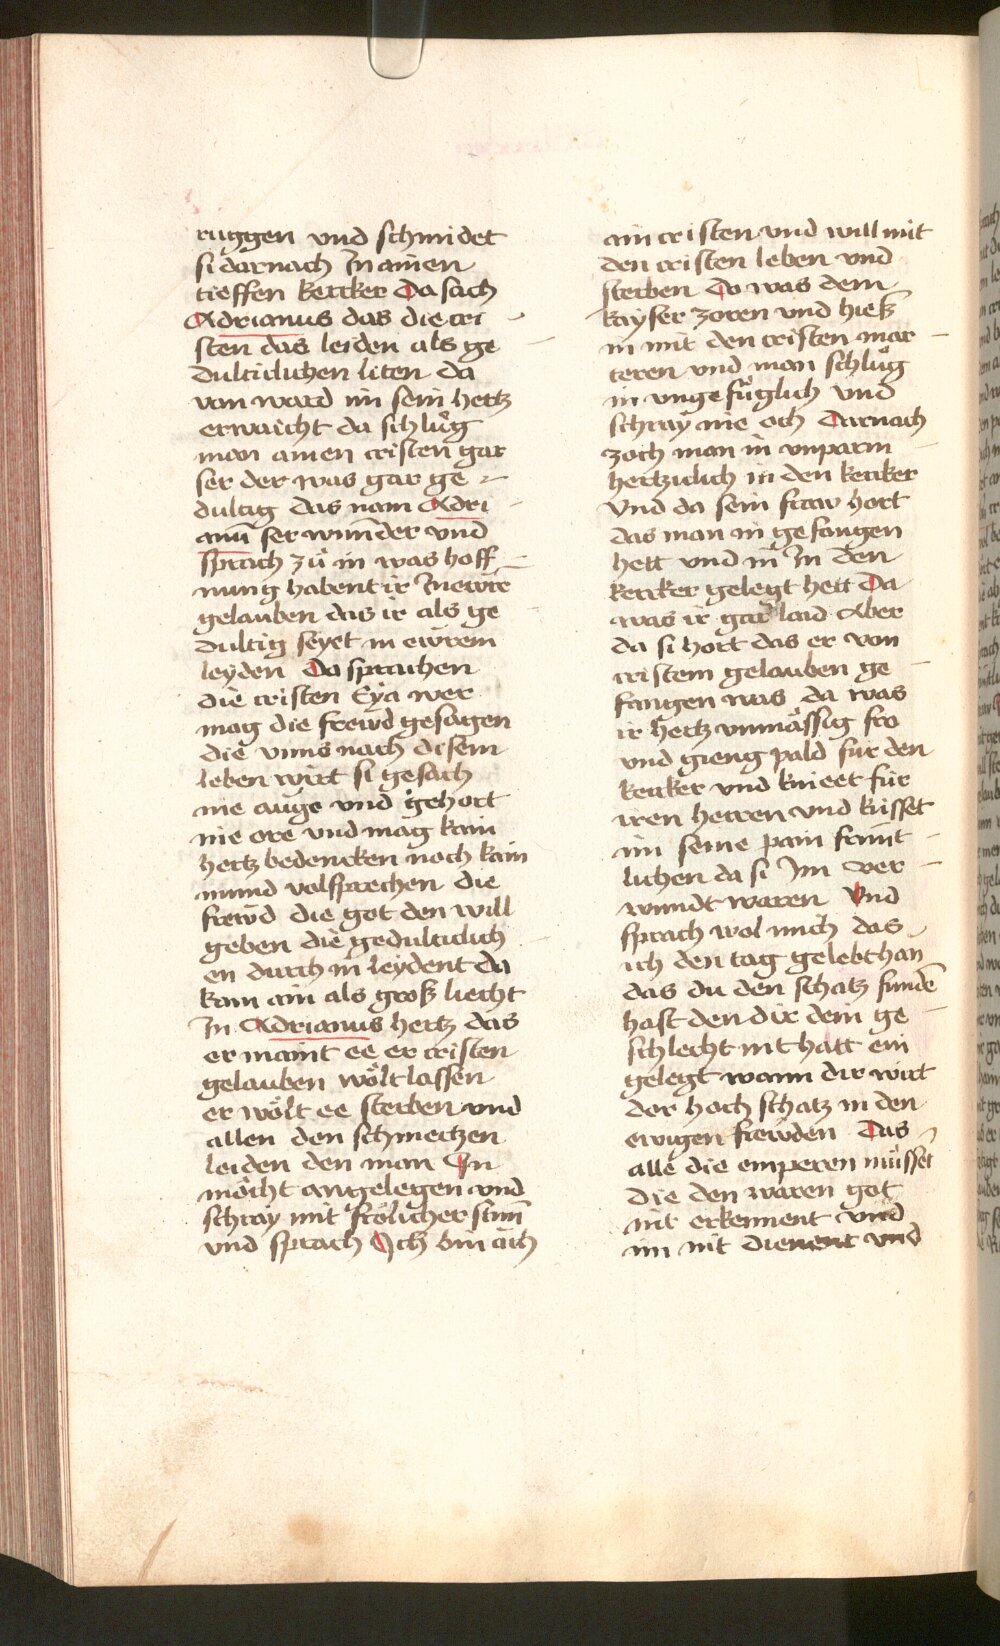 ruggen vnd schmidet
si darnach In ainen
tieffen kercker Da sach
Adrianus das die cri
sten das leiden als ge
dultiklichen liten da
von ward im sein hertz
erwaicht da schlůg
man ainen cristen gar
ser der was gar ge
dultig das nam Adri
anū ser wunder vnd
sprach zů in was hoff
nung habent ir In ewre
gelauben das ir als ge
dultig seyet in ewrem
leyden Da sprachen
die cristen Eya wer
mag die frewd gesagen
die vnns nach disem
leben wirt si gesach
nie auge vnd gehort
nie ore vnd mag kain
hertz bedencken noch kain
mund volsprechen die
frewd die got den will
geben die gedultiklich
en durch in leydent da
kam ain als groß liecht
In Adrianus hertz das
er maint ee er cristen
gelauben wölt lassen
er wölt ee sterben vnd
allen den schmertzen
leiden den man In
möcht angelegen vnd
schray mit frölicher stim
vnd sprach Ich bin ach
ain cristen vnd will mit
den cristen leben vnd
sterben Do was dem
kayser zoren vnd hieß
in mit den cristen mar
teren vnd man schlůg
in vngefůglich vnd
schray nie och Darnach
zoch man in vnparm
hertziclich in den kercker
Vnd da sein fraw hort
das man in gefangen
hett vnd in In den
kercker gelegt hett Da
was ir gar laid Aber
da si hort das er von
cristem gelauben ge
fangen was da was
ir hertz vnmässig fro
vnd gieng pald für den
kercker vnd knieet für
iren herren vnd küsset
im seine pain frünt
lichen da si Im ver
wundt waren Vnd
sprach wol mich das
ich den tag gelebt han
das du den schatz funde
hast den dir dein ge
schlecht nit hatt ein
gelegt wann dir wirt
der hoch schatz in den
ewigen frewden Das
alle die emperen müssēt
die den waren got
nit erkennent vnd
im nit dienent vnd